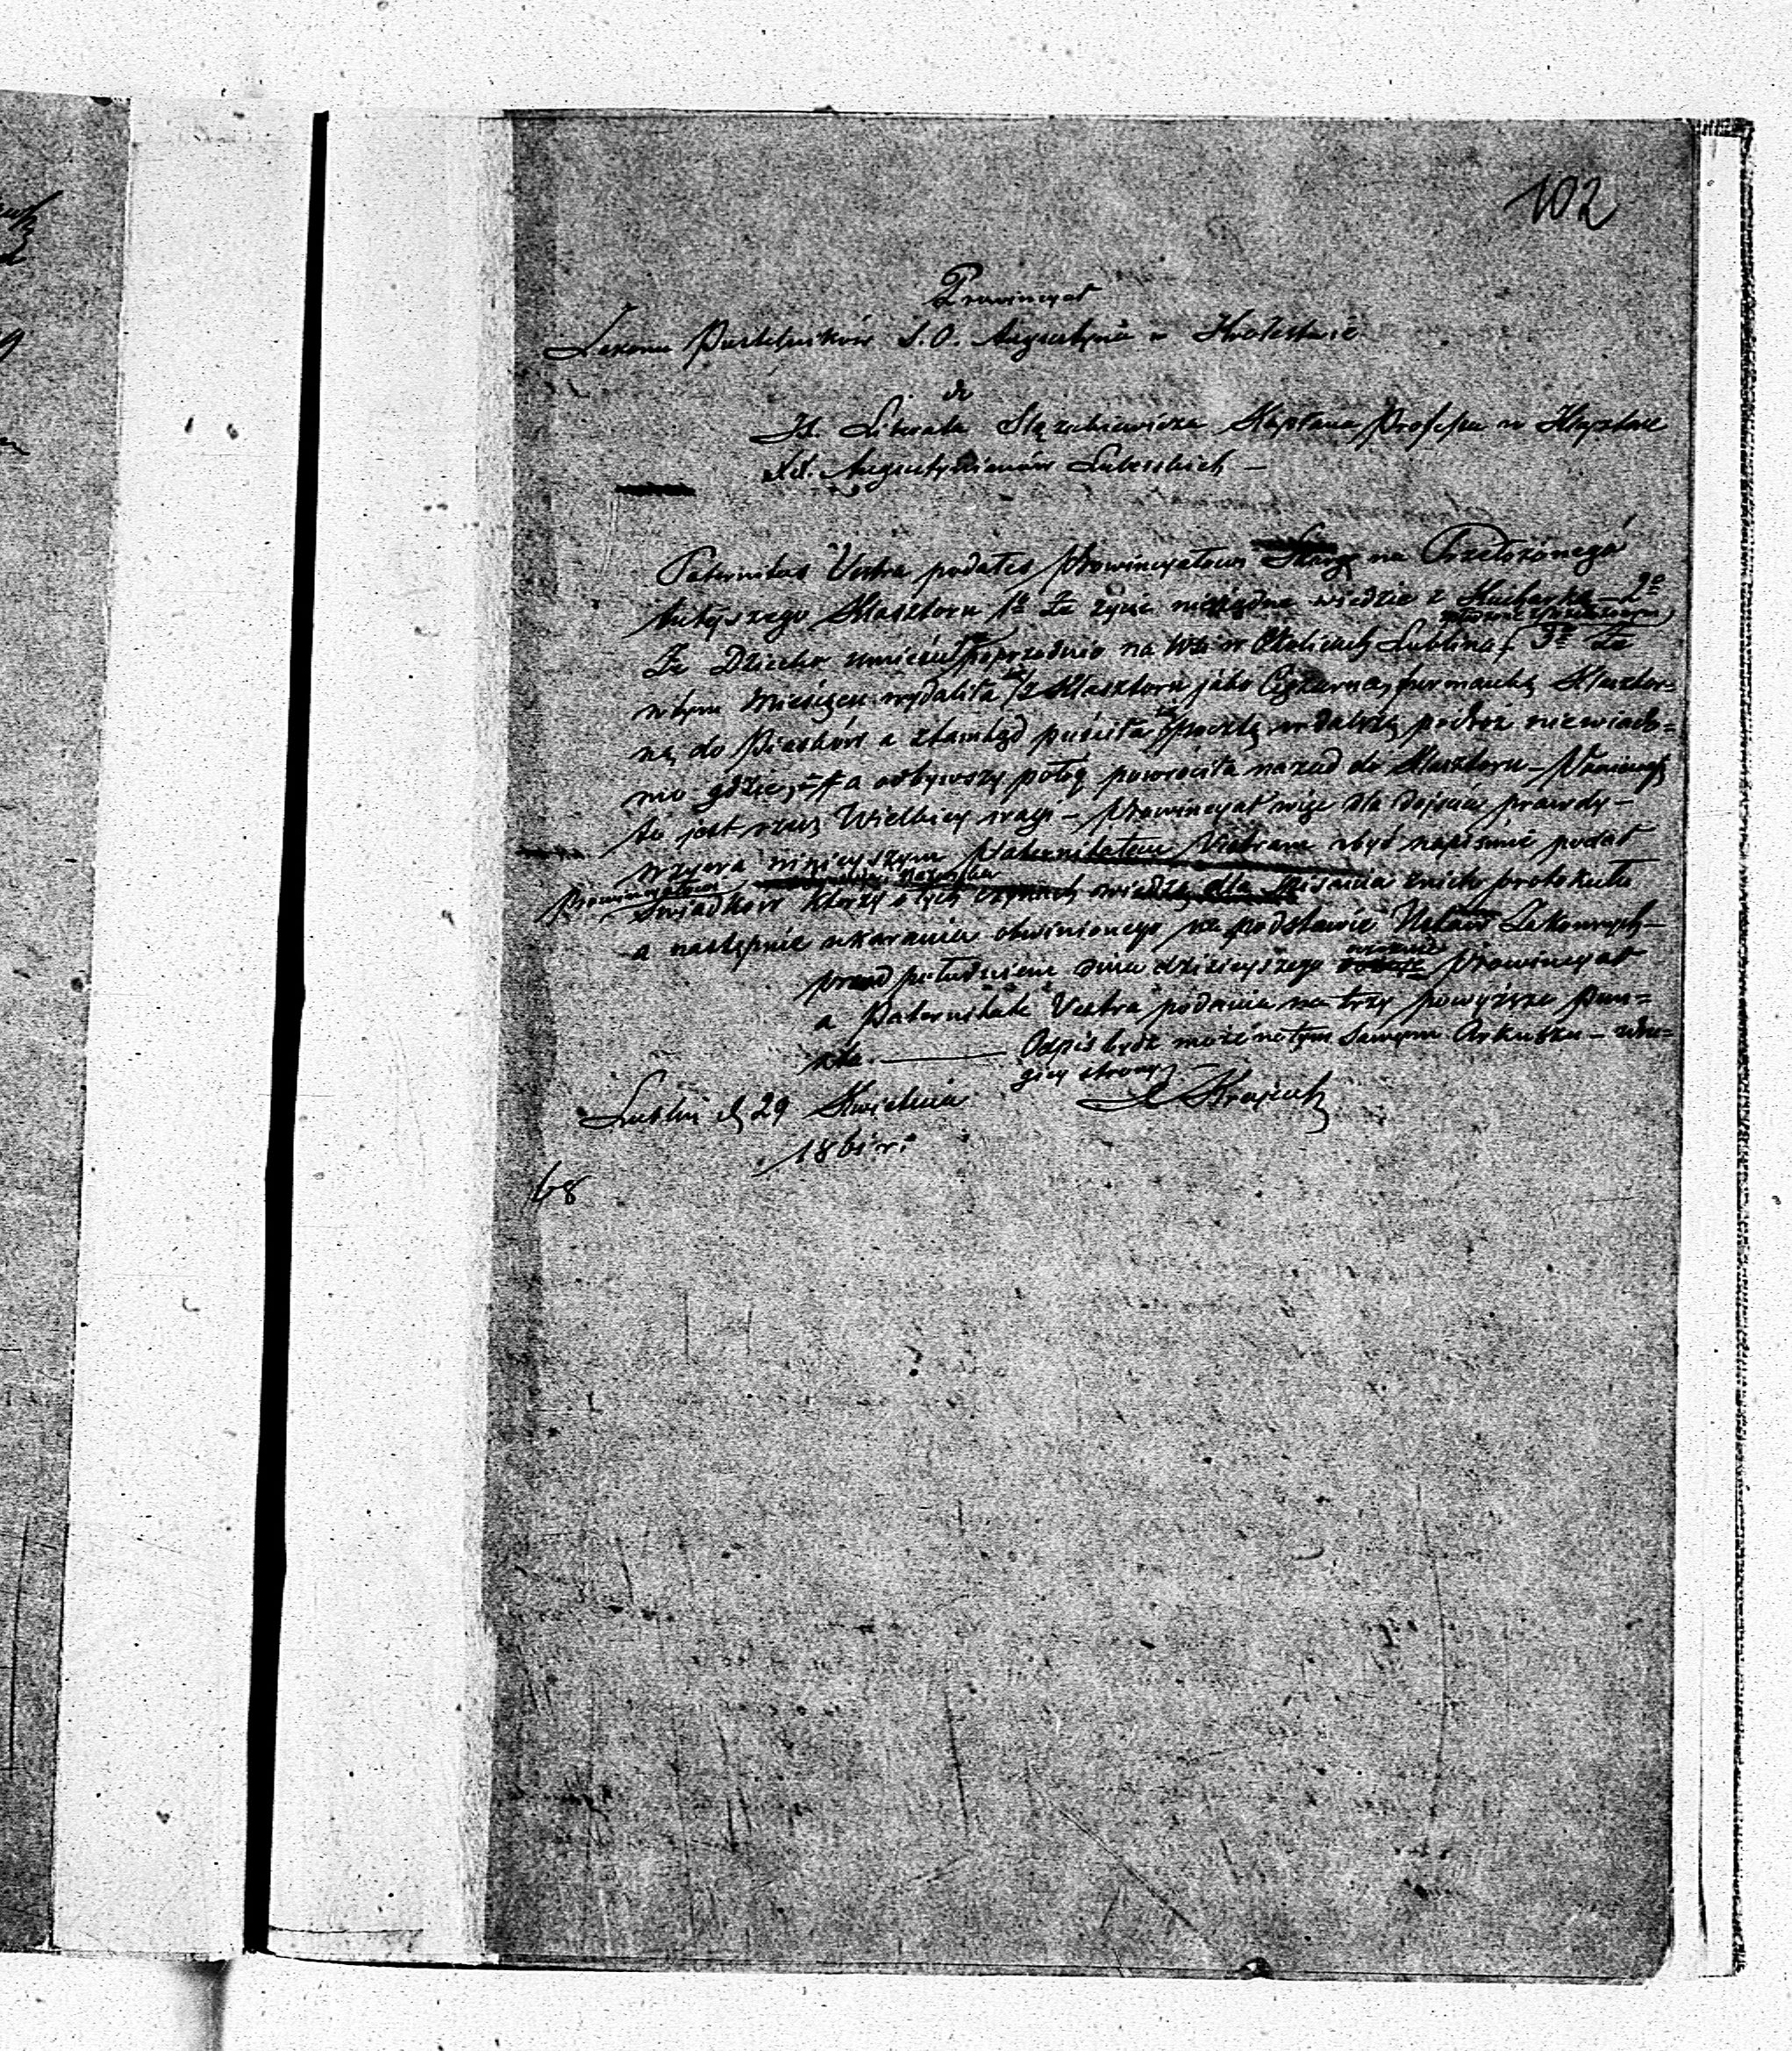 102
Prowincyał
Zakonu Pustelników S. O. Augustyna w Królestwie
do
X. Liberata Stężchiewicza Kapłana Professa w Klasztorze
XX. Augustyanów Lubelskich —
Paternitas Vestra podałeś Prowincyałowi Skargę na Przełożonego
tutejszego Klasztoru 1º że życie nierządne wiedzie z Kucharką — 2º
że Dziecko umieścił poprzednio na Wsi w Okolicach Lublina, 3º że
w tym miesiącu wydaliła się z Klasztoru jako Ciężarna, furmanką Klasztor=
ną do Piasków a ztamtąd puściła się pocztą w dalszą podróż niewiado=
mo gdzie, a odbywszy połóg powróciła nazad do Klasztoru —
to jest rzecz Wielkiey wagi — Prowincyał więc dla dojścia prawdy —
wzywa niniejszym Paternitatem Vestram abyś napiśmie podał
Prowincyałowi
Swiadków którzy o tych czynach wiedzą dla spisania z nich protokułu
a następnie ukarania obwinionego na podstawie Ustaw Zakonnych —
przed południem dnia dzisieyszego Prowincyał
a Paternitate Vestra podania na trzy powyższe pun=
kta. — Odpis być może na tym samym Arkuszu — dru=
giey strony —
Lublin d. 29 Kwietnia
1861 r.
68